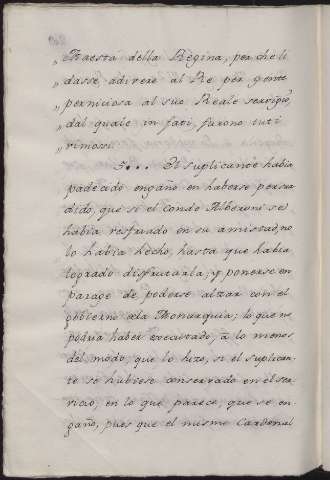 „ Maestà della Regina, per che li
„ dasse adirere al Re per gente
„ perniciosa al suo Reale servigio,
„ dal quale in fati, furono tuti
„ rimossi.
5... El suplicante habia
padecido engaño en haberse persua
dido, que si el conde Alberoni se
habia resfriado en su amistad, no
lo habia hecho, hasta que habia
logrado disfrutarla; y ponerse en
parage de poderse alzar con el
gobierno de la Monarquia; lo que no
podria haber executado, à lo menos
del modo, que lo hizo, si el suplican-
te se hubiese conservado en el ser
vicio; en lo que parece, que se en-
gañò, pues que el mismo Cardenal